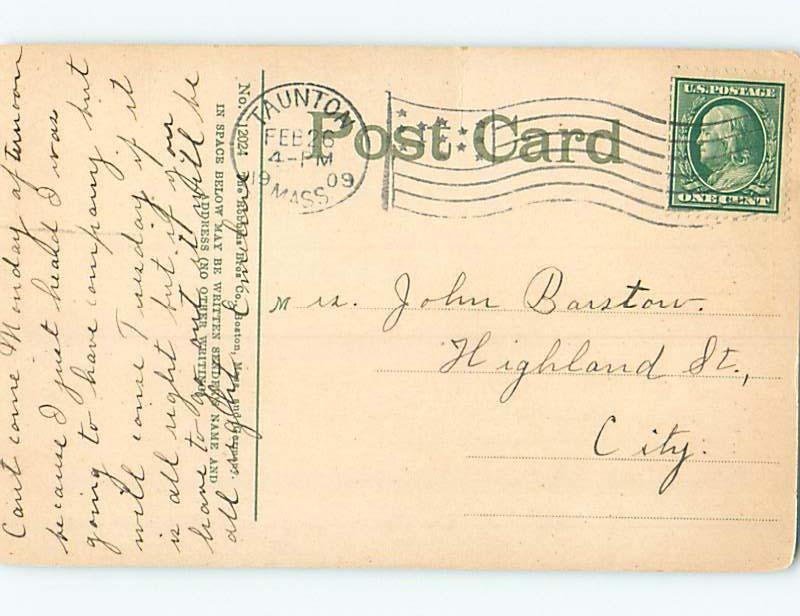 Cant come Monday afternoon
because I just heard I was
going to have company but
will come Tuesday if it
is all right but if you
have to go out it will be
all right
No. 12024 Bros Co., Boston, Mass. and Germany.
IN SPACE BELOW MAY BE WRITTEN SENDER'S NAME AND
ADDRESS (NO OTHER WRITING)
Post Card
TAUNTON
FEB 26
4-PM
1909
MASS.
U.S. POSTAGE
ONE CENT
Mrs. John Barstow.
Highland St.,
City.